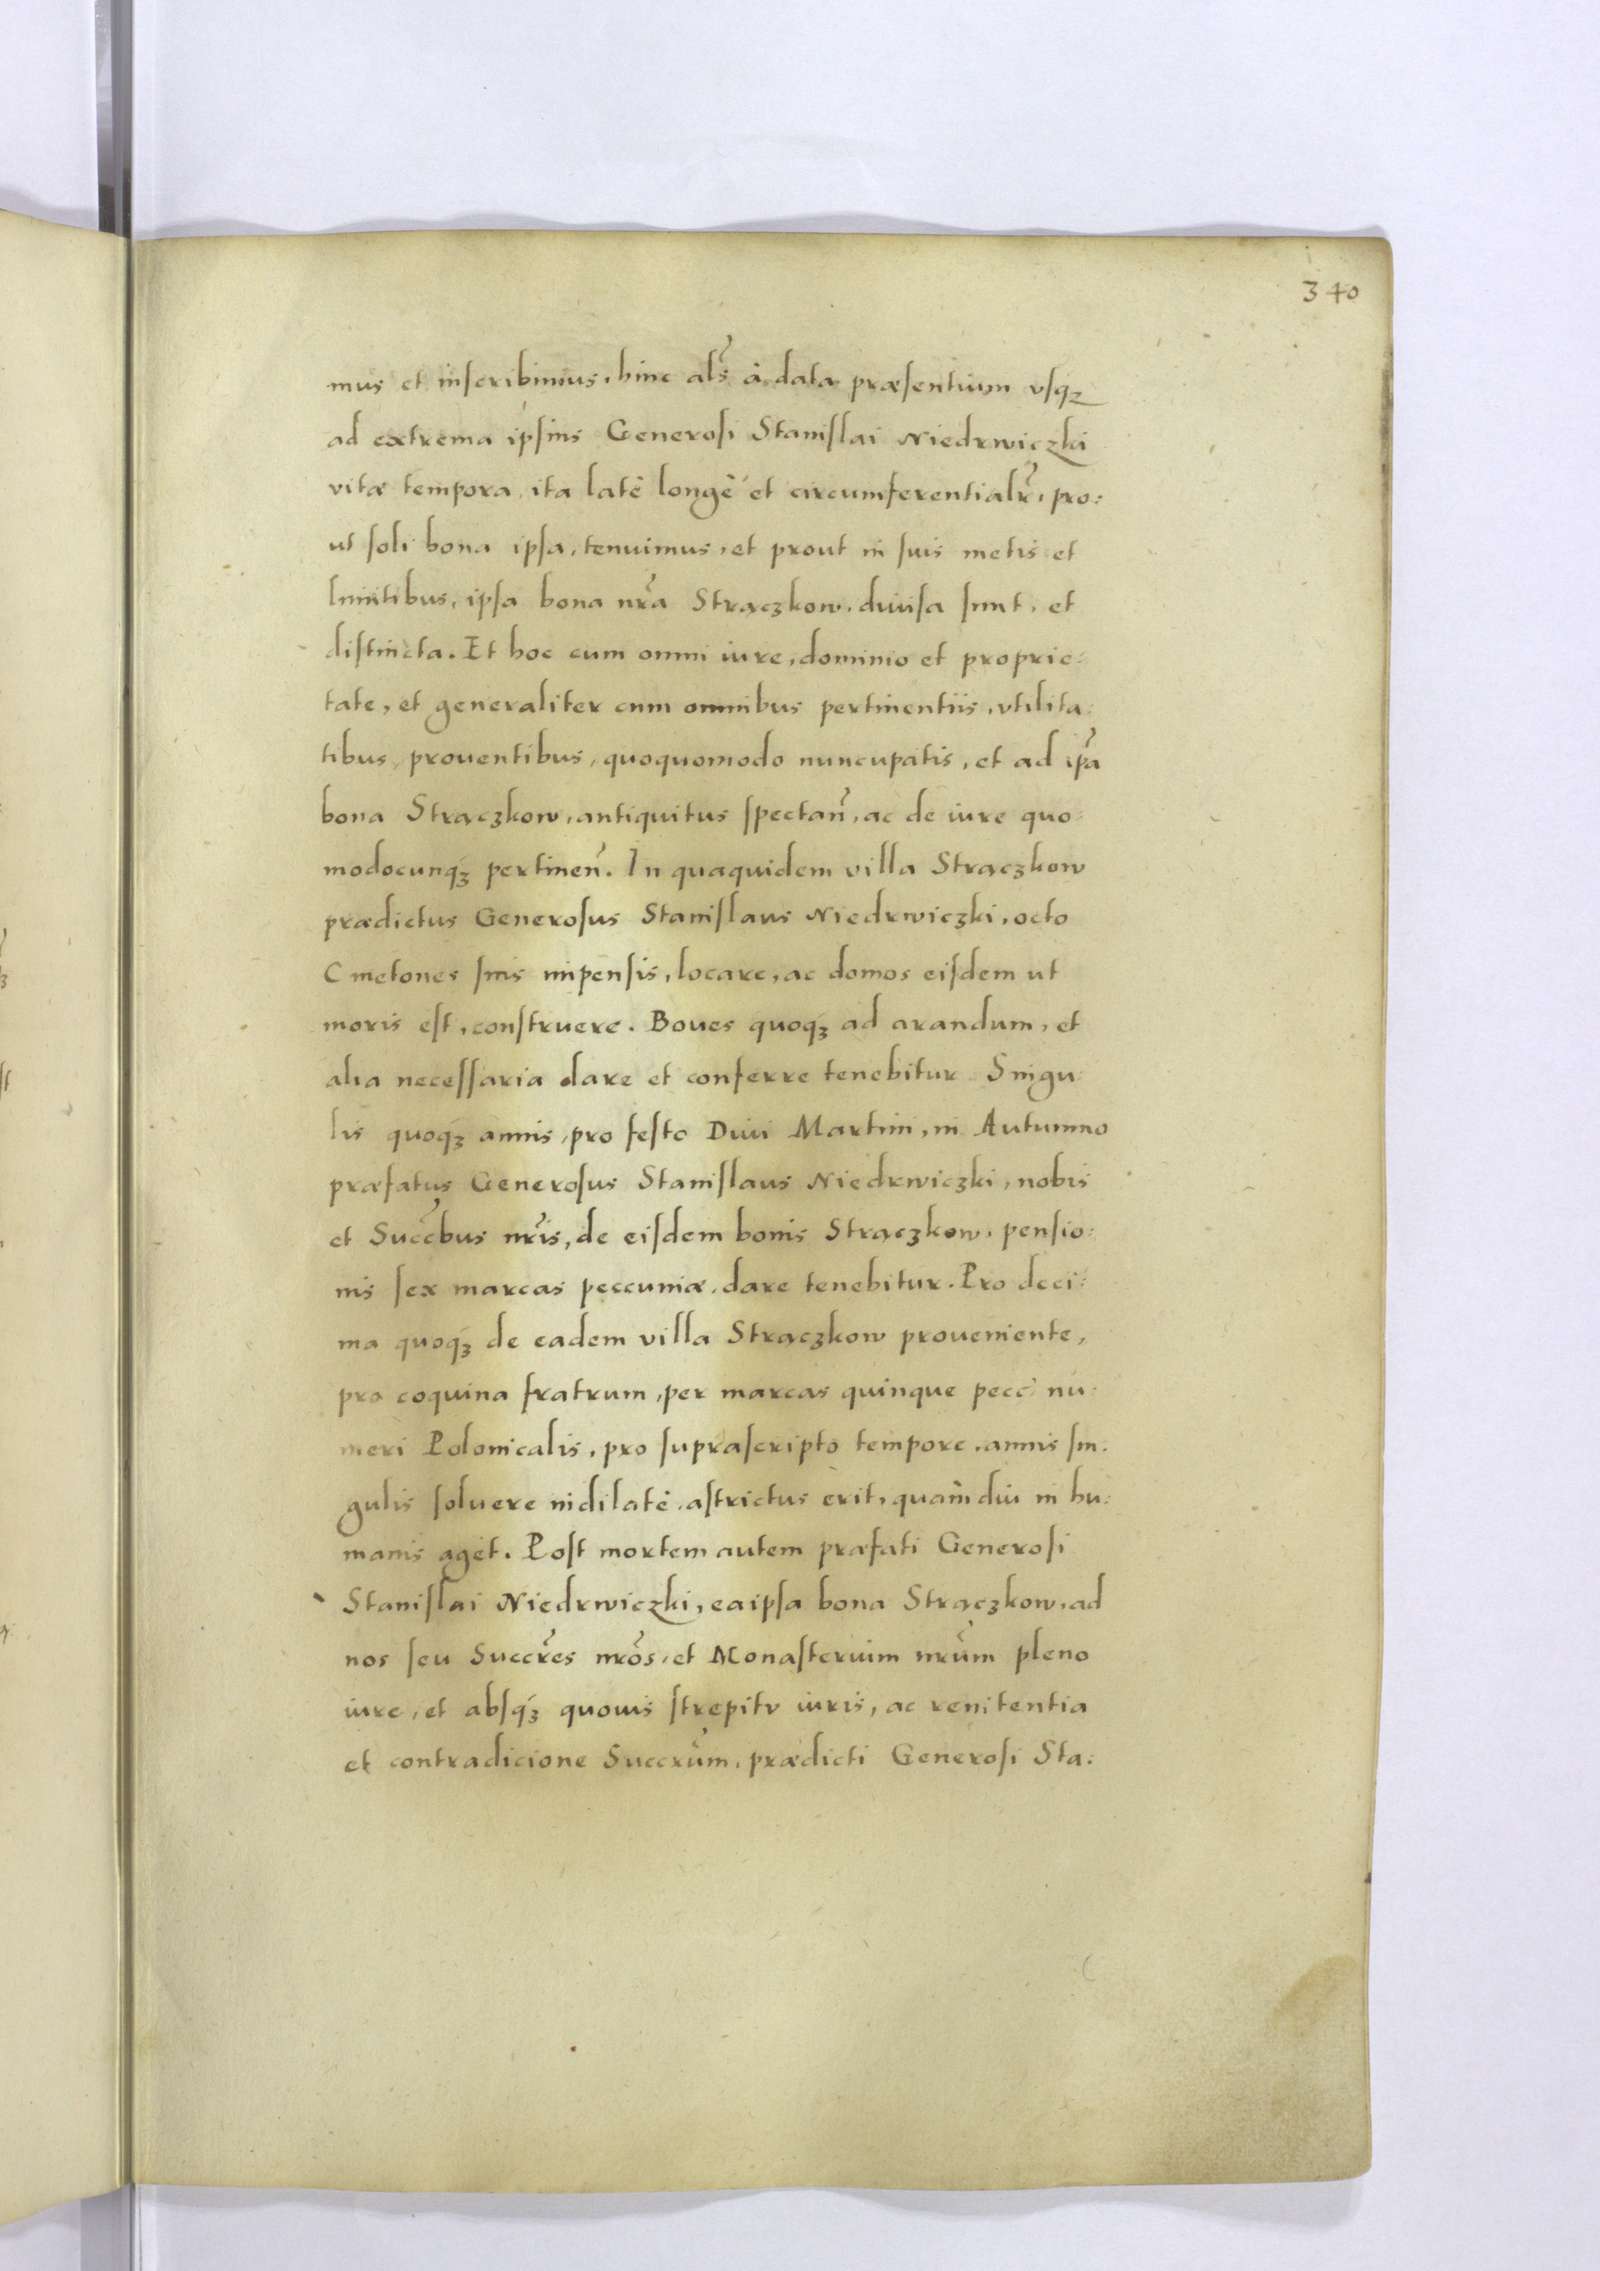 340
mus et inscribimus, hinc als̃ à data præsentium vsqꝫ
ad extrema ipsius Generosi Stanislai Niedrwiczki
vitæ tempora, ita latè longè et circumferentialr̃, pro:
ut soli bona ipsa, tenuimus, et prout in suis metis et
limitibus, ipsa bona nr̃a Strączkow, diuisa sunt, et
distincta. Et hoc cum omni iure, dominio et proprie:
tate, et generaliter cum omnibus pertinentiis, vtilita:
tibus, prouentibus, quoquomodo nuncupatis, et ad ip̃a
bona Strączkow, antiquitus spectan̄, ac de iure quo:
modocunqꝫ pertinen̄. In quaquidem villa Strączkow
prædictus Generosus Stanislaus Niedrwiczki, octo
Cmetones suis impensis, locare, ac domos eisdem ut
moris est, construere. Boues quoqꝫ ad arandum, et
alia necessaria dare et conferre tenebitur Singu:
lis quoqꝫ annis, pro festo Diui Martini, in Autumno
præfatus Generosus Stanislaus Niedrwiczki, nobis
et Succ̃bus nr̃is, de eisdem bonis Strączkow, pensio:
nis sex marcas peccuniæ, dare tenebitur. Pro deci:
ma quoqꝫ de eadem villa Strączkow proueniente,
pro coquina fratrum, per marcas quinque pecc̃ nu:
meri Polonicalis, pro suprascripto tempore, annis sin:
gulis soluere indilatè, astrictus erit, quamdiu in hu:
manis aget. Post mortem autem præfati Generosi
Stanislai Niedrwiczki, eaipsa bona Strączkow, ad
nos seu Succr̃es nr̃os, et Monasterium nr̃um pleno
iure, et absqꝫ quouis strepitv iuris, ac renitentia
et contradicione Succr̃um, prædicti Generosi Sta: